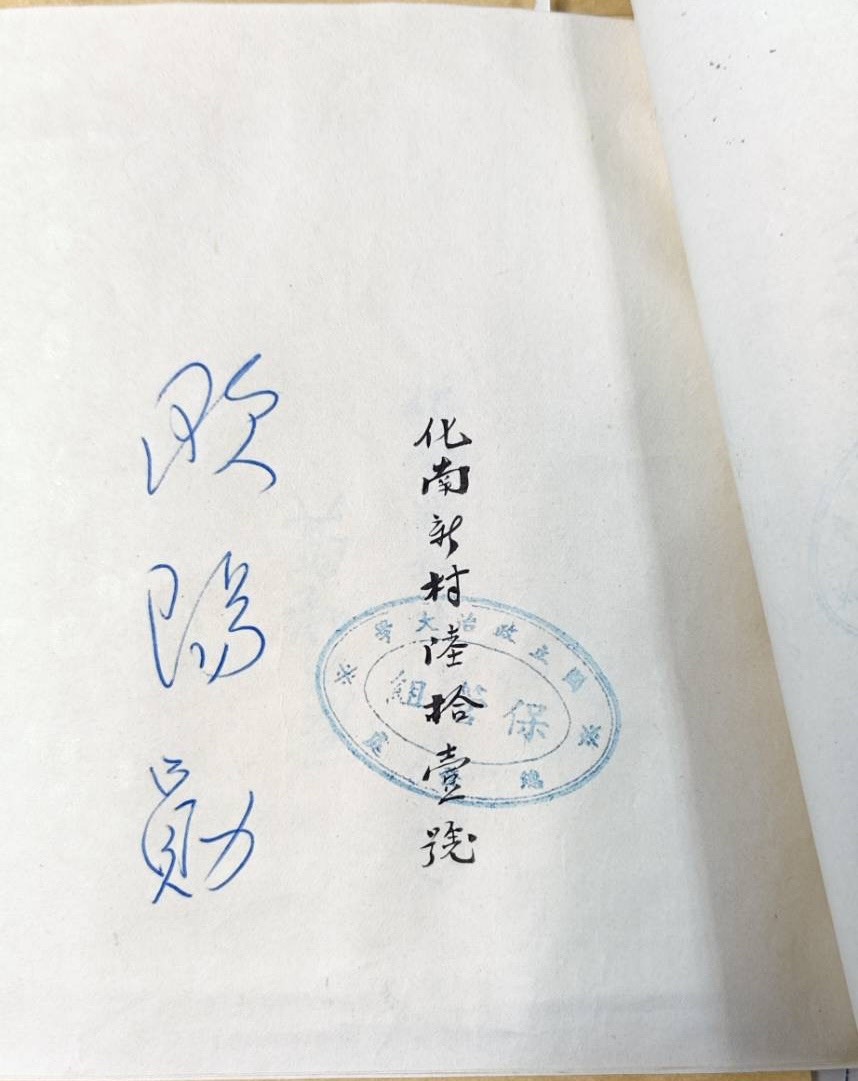 化南新村陸拾壹號
國立政治大學
保管組
總務處
歐陽勛